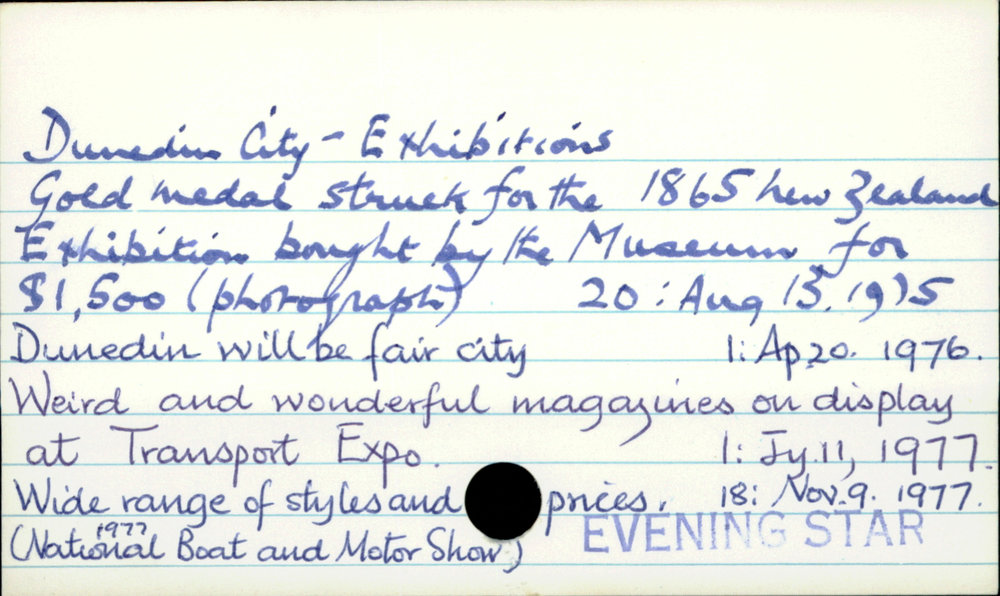 Dunedin City - Exhibitions
Gold medal struck for the 1865 New Zealand
Exhibition bought by the Museum for
$1,500 (photograph) 20: Aug 13, 1975
Dunedin will be fair city 1: Ap 20. 1976.
Weird and wonderful magazines on display
at Transport Expo. 1: Jy. 11, 1977.
Wide range of styles and prices. 18: Nov. 9. 1977.
1977
(National Boat and Motor Show)
EVENING STAR